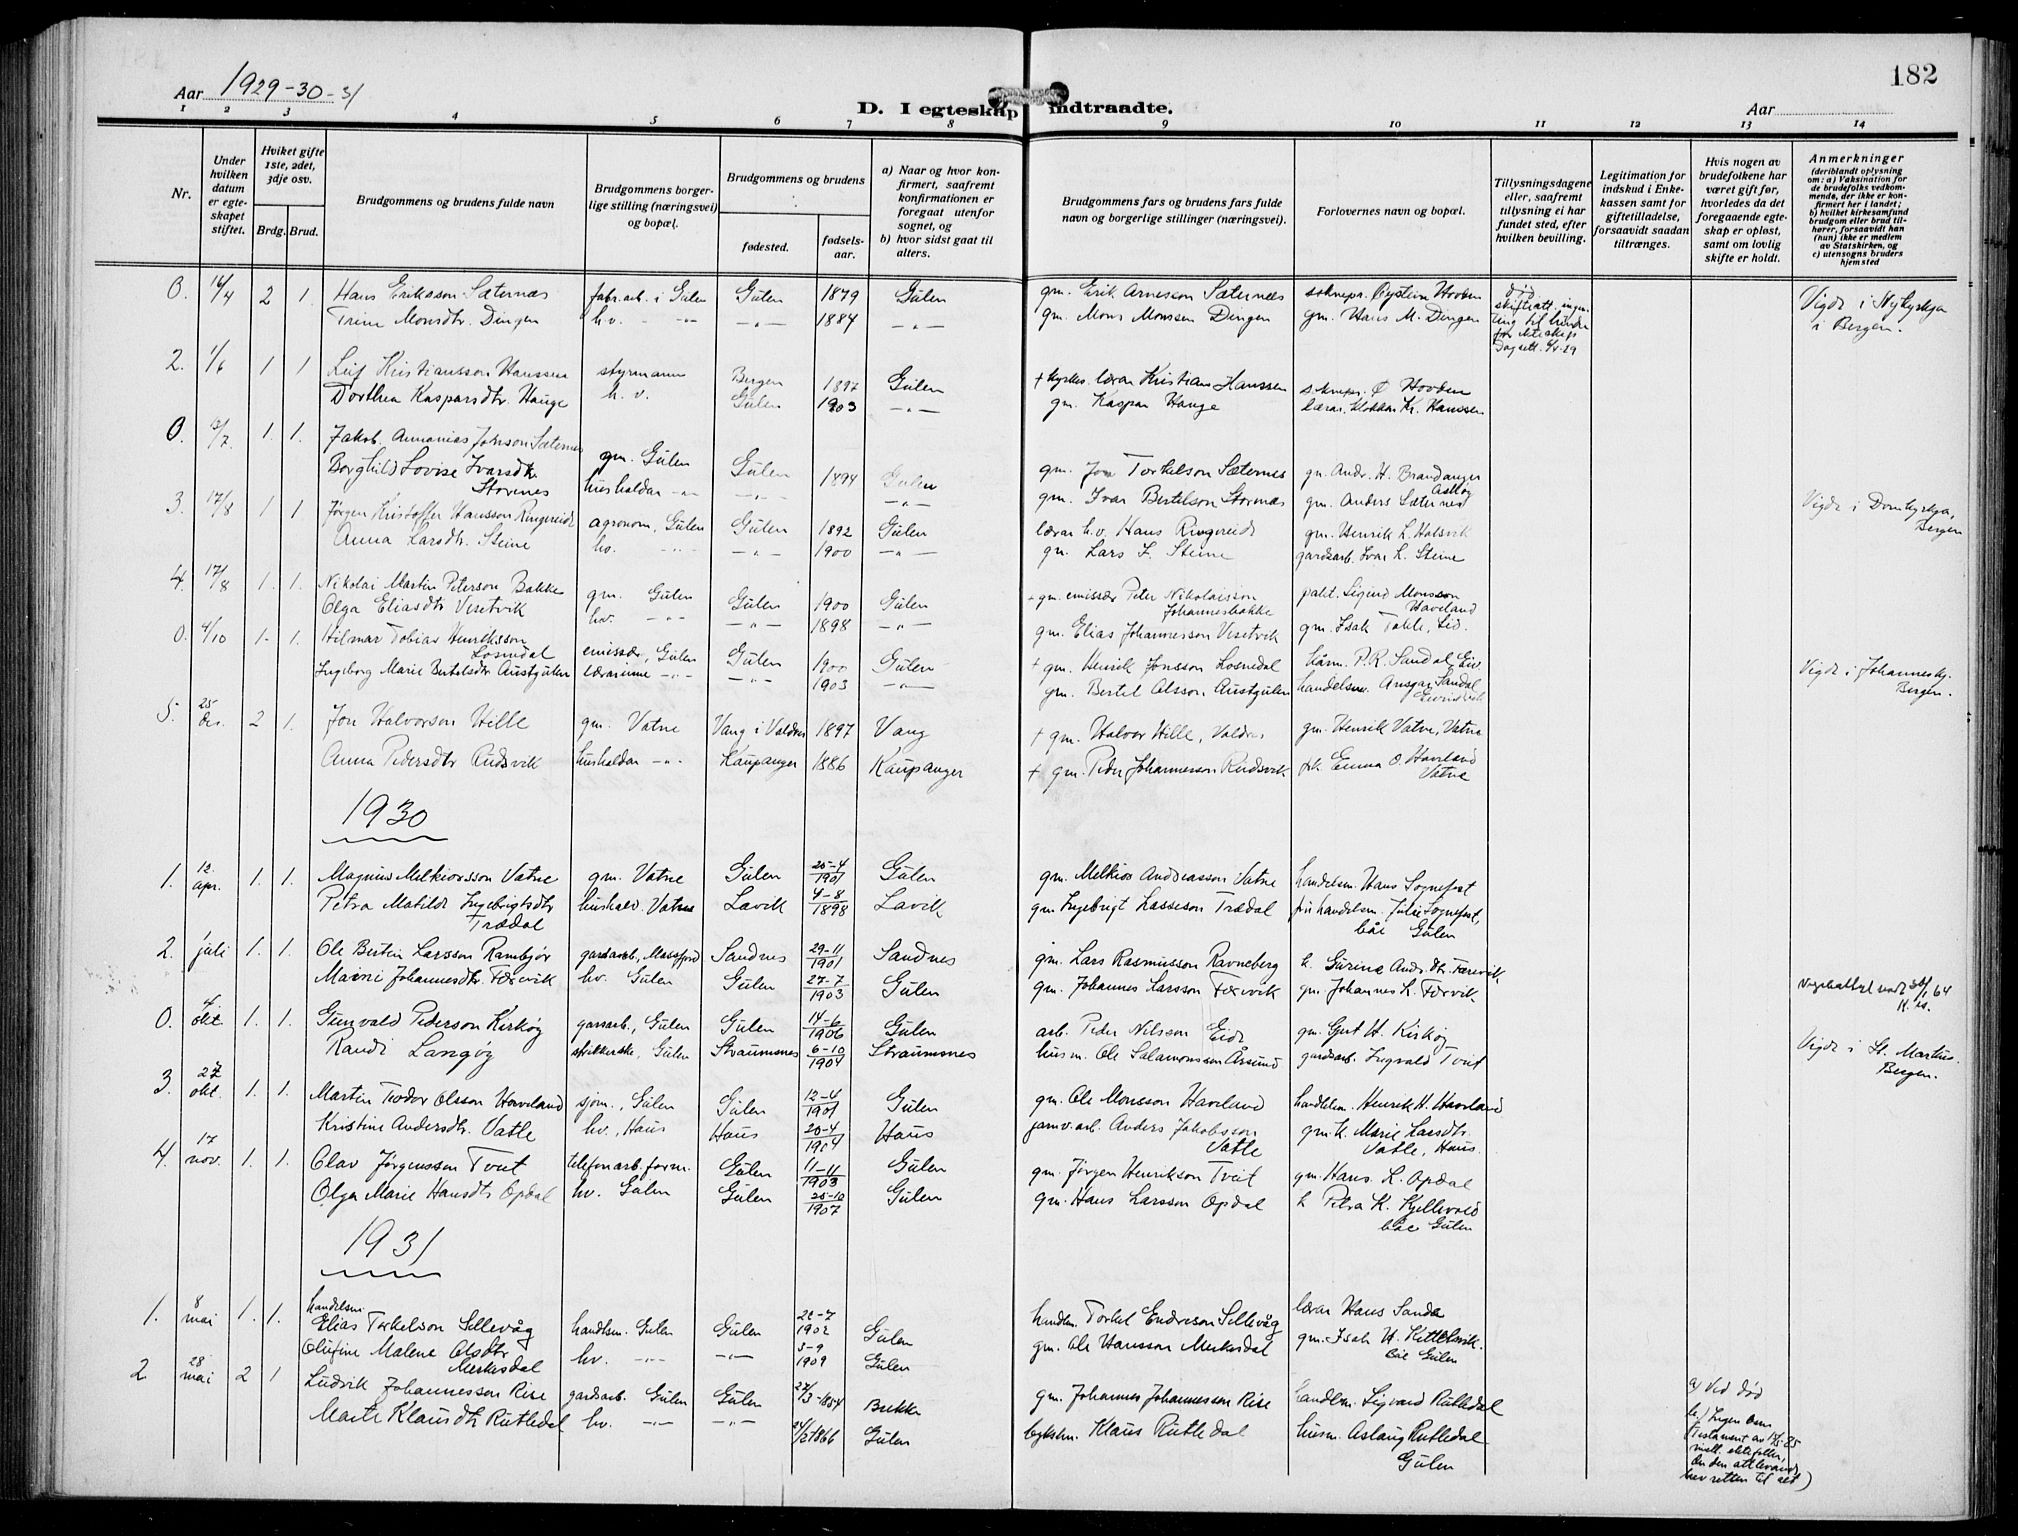 182
Aar 1929-30-31
D. I egteskap indtraadte.
Aar
1 2 3 4 5 6 7 8 9 10 11 12 13 14
Nr.
Under hvilken datum er egteskapet stiftet.
Hviket gifte 1ste, 2det, 3dje osv.
Brdg. Brud.
Brudgommens og brudens fulde navn
Brudgommens borgerlige stilling (næringsvei) og bopæl.
Brudgommens og brudens
fødested.
fødselsaar.
a) Naar og hvor konfirmert, saafremt konfirmationen er foregaat utenfor sognet, og
b) hvor sidst gaat til alters.
Brudgommens fars og brudens fars fulde navn og borgerlige stillinger (næringsvei).
Forlovernes navn og bopæl.
Tillysningsdagene eller, saafremt tillysning ei har fundet sted, efter hvilken bevilling.
Legitimation for indskud i Enkekassen samt for giftetilladelse, forsaavidt saadan tiltrænges.
Hvis nogen av brudefolkene har været gift før, hvorledes da det foregaaende egteskap er opløst, samt om lovlig skifte er holdt.
Anmerkninger (deriblandt oplysning om: a) Vaksination for de brudefolks vedkommende, der ikke er konfirmert her i landet; b) hvilket kirkesamfund brudgom eller brud tilhører, forsaavidt han (hun) ikke er medlem av Statskirken, og c) utensogns bruders hjemsted
0. 14/4 2 1. Hans Eriksson Sæternæs fabr.arb. i Gulen Gulen 1879 Gulen gm. Erik Arnesson Sæternæs soknepr. Øystein Hovden Vigde i Nykyrkja
Trine Monsdtr. Dingen hv. -"- -"- 1884 -"- gm. Mons Monssen Dingen gm. Hans M. Dingen i Bergen.
2. 1/6 1 1 Leif Kristiansson Hanssen styrmann Bergen 1897 Gulen + kyrkes. lærar Kristian Hanssen soknepr. Ø Hovden
Dorthea Kasparsdtr. Hauge h. v. Gulen 1903 -"- gm. Kaspar Hauge lærar, klokkar Kr. Hanssen
0. 1. 1. Jakob Annanias Jonson Sæternes gm. Gulen Gulen 1894 Gulen gm. Jon Torkelson Sæternes gm. Andr. H. Brandanger
Borghild Lovise Ivarsdtr. Storenes hushaldar -"- -"- -"- gm. Ivar Bertelson Stornæs gm. Anders Sæternes
3. 17/8 1 1 Jørgen Kristoffer Hansson Ringereide agronom, Gulen Gulen 1892 Gulen lærar h.v. Hans Ringereide gm. Henrik L. Halsvik Vigde i Domkyrkja, Bergen
Anna Larsdtr. Steine hv. -"- -"- 1900 -"- gm. Lars I. Steine gardsarb. Ivar L. Steine
4. 17/8 1. 1. Nikolai Martin Peterson Bakke gm. Gulen Gulen 1900 Gulen + gm. emissær Peter Nikolaisson Johannesbakke Sigurd Monsson Haveland
Olga Eliasdtr Visetvik hv. -"- -"- 1898 -"- gm. Elias Johannesson Visetvik gm. Isak Takle, Eid.
0. 4/10 1. 1. Hilmar Tobias Henriksson Losnedal emissær, Gulen Gulen 1900 Gulen + gm. Henrik Jonsson Losnedal P. R. Sandal Vigde i Johannesky. Bergen.
Ingeborg Marie Bertelsdtr. Austgulen lærarinne -"- -"- 1903 -"- gm. Bertel Olsson Austgulen handelsm. Ansgar Sandal Eivindvik
5. 25 des. 2 1. Jon Halvorson Hille gm. Vatne Vang i Valdres 1897 Vang + gm. Halvor Hille, Valdres gm. Henrik Vatne, Vatne
Anna Pedersdtr Rudsvik hushaldar -"- Kaupanger 1886 Kaupanger + gm. Peder Johannesson Rudsvik frk. Emma O. Haveland Vatne
1930
1. 12. apr. 1. 1. Magnus Melkiorsson Vatne gm. Vatne Gulen 25-4 1901 Gulen gm. Melkior Andreasson Vatne handelsm. Hans Sognefest
Petra Matilde Ingebrigtsdtr Trædal hushald. Vatne Lavik 4-8 1898 Lavik gm. Ingebrigt Lasseson Trædal fru handelsm. Julie Sognefest, båe Gulen
2. juli 1. 1. Ole Bertin Larsson Rambjør gardsarb, Masfjord Sandnes 29-11 1901 Sandnes gm. Lars Rasmusson Ravneberg k. Gurine Andr.dtr. Færevik
Marie Johannesdtr. Færevik hv. Gulen Gulen 27-7 1903 Gulen gm. Johannes Larsson Færevik gm. Johannes L. Færvik
0. 4. okt. 1. 1. Gunvald Pederson Kirkøy gardsarb., Gulen Gulen 14-6 1906 Gulen arb. Peder Nilsson Eide gm. Gert H. Kirkøy
Randi Langøy strikkerske, Gulen Straumsnes 6-10 1904 Straumsnes husm. Ole Salamonsson Årsund gardsarb. Ingvald Tveit Vigde i St. Martins. Bergen.
3. 27 okt. 1. 1. Martin Teodor Olsson Haveland sjøm., Gulen Gulen 12-4 1901 Gulen gm. Ole Monsson Haveland handelsm. Henrik H. Haveland
Kristine Andersdtr. Vatle hv., Haus Haus 20-4 1904 Haus jarnv.arb. Anders Jakobsson Vatle gm.k. Marie Larsdtr. Vatle, Haus.
4. 17 nov. 1. 1. Olav Jørgensson Tveit telefonarb. form. Gulen 11-11 1903 Gulen gm. Jørgen Henrikson Tveit gm. Hans L. Opdal
Olga Marie Hansdtr Opdal hv. Gulen Gulen 25-10 1907 Gulen gm. Hans Larsson Opdal k Petra K. Kjellevold båe Gulen
1931
1. 8 mai 1. 1. handelsm Elias Torkelson Sellevåg handlsm. Gulen Gulen 22-7 1902 Gulen handlm. Torkel Endreson Sellevåg lærar Hans Sande
Olufine Malene Olsdtr Merkesdal hv. -"- -"- 3-9 1909 Gulen gm. Ole Hansson Merkesdal gm. Isak H. Kittelsvik. båe Gulen
2 28 mai 2 1 Ludvik Johannesson Rise gardsarb. Gulen Gulen 27/3-1854 Brekke gm. Johannes Johannesson Rise handlm. Sigvard Rutledal a) Ved død
Marte Klausdtr. Rutledal hv. -"- -"- 24/2 1866 Gulen Klaus Rutledal husm. Aslaug Rutledal Gulen